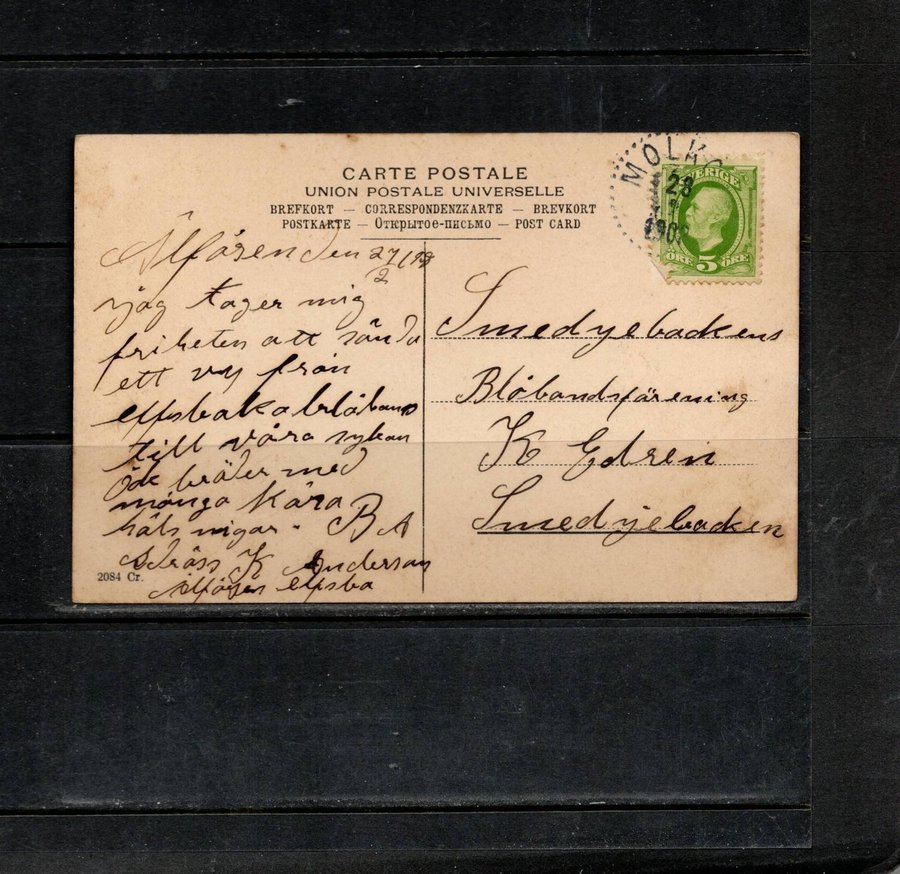 CARTE POSTALE
UNION POSTALE UNIVERSELLE
BREFKORT — CORRESPONDENZKARTE — BREVKORT
POSTKARTE — Открытое-письмо — POST CARD
MOLKO
28
SVERIGE
ÖRE 5 ÖRE
den 27/2
jag tager mig
friheten att sända
ett vy från
elfsbaka blåbans
till våra sykan
Ock bråder med
många kära
häls nigar. B A
adräss K Anderson
elfsba
2084 Cr.
Smedyebackens
Blåbandsförening
K Edren
Smedyebacken